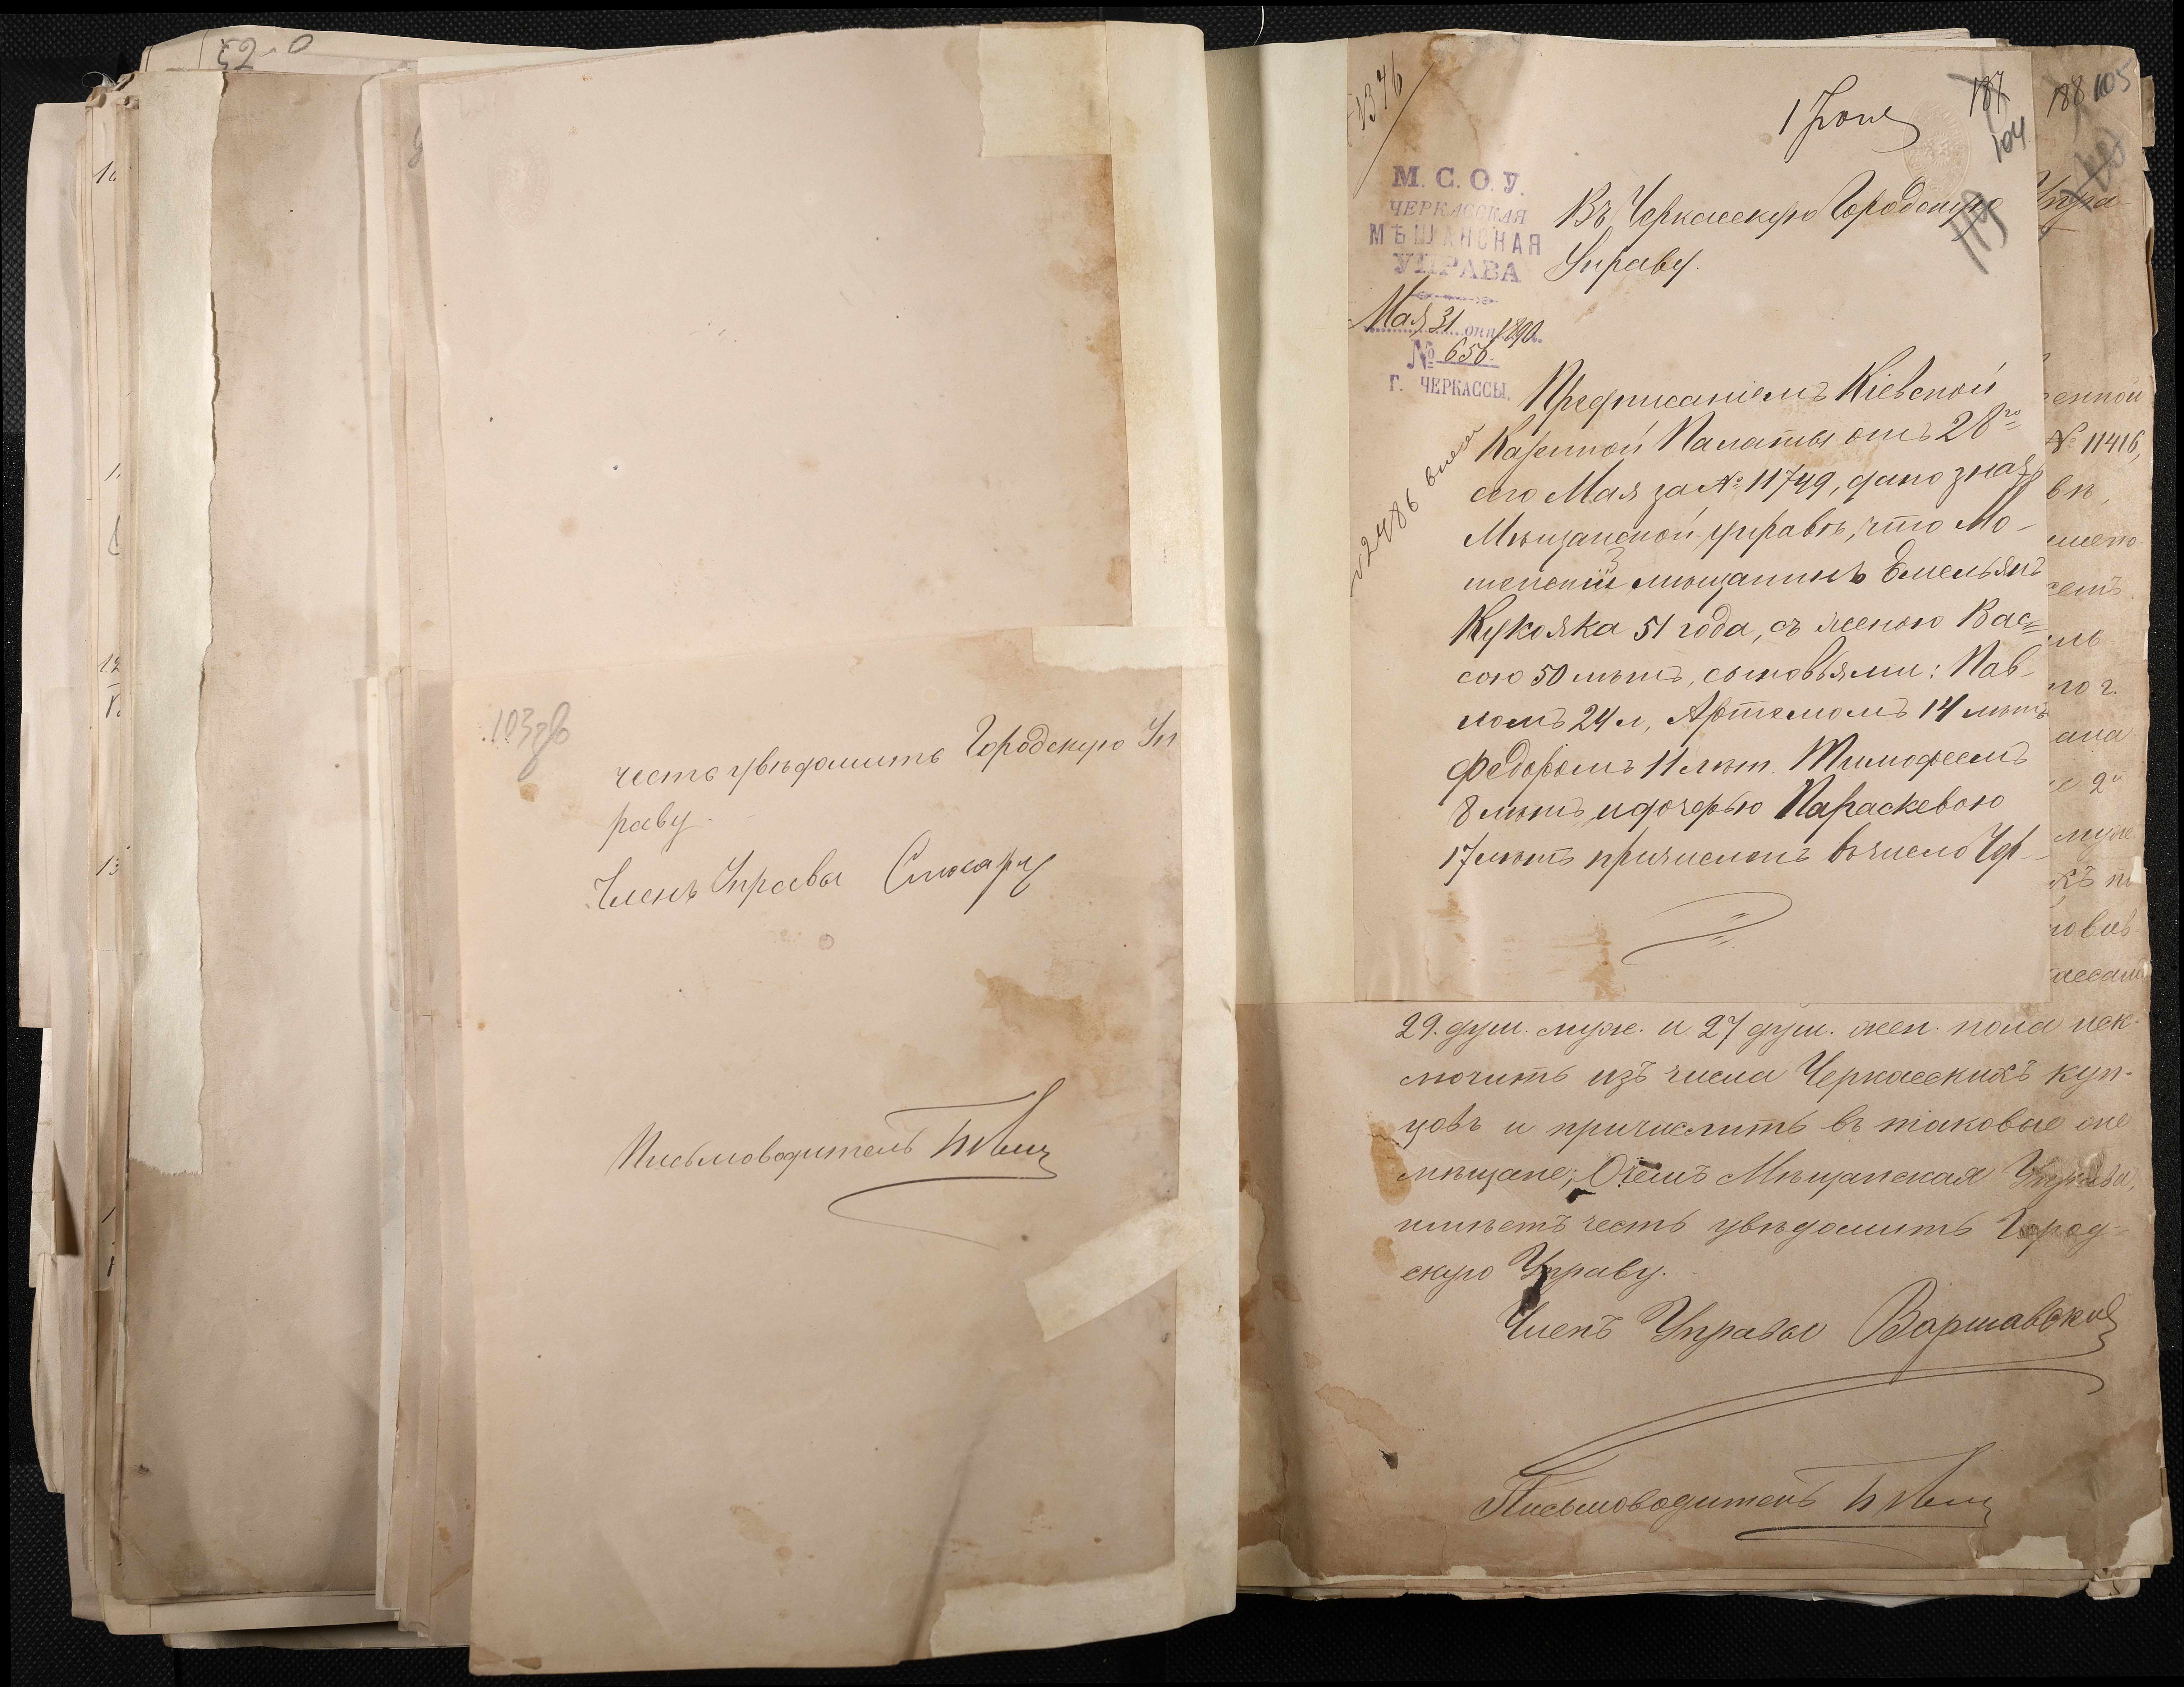 103 зв
честь увѣдомить Городскую Уп
раву.
Членъ Управы
Письмоводитель
1376
1 Іюня
187
104
119
188
105
М. С. О. У.
ЧЕРКАССКАЯ
МѢЩАНСКАЯ
УПРАВА
Мая 31 дня 1890.
№ 656.
Г. ЧЕРКАССЫ.
Въ Черкасскую Городскую
Управу.
Предписаніемъ Кіевской
Казенной Палаты отъ 28го
сего Мая за № 11749, дано знать
Мѣщанской управѣ, что Мо-
шенскій мѣщанинъ Емельянъ
Кукояка 51 года, съ женою Вас=
сою 50 лѣтъ, сыновьями: Пав-
ломъ 24 л, Артемомъ 14 лѣтъ
Федоромъ 11 лѣт. Тимофеемъ
8 лѣтъ и дочерью Параскевою
17 лѣтъ причисленъ въ число Чер-
№ 2486
Упра-
енной
№ 11416,
29. душ. муж. и 27 душ. жен. пола иск-
лючить изъ числа Черкасскихъ куп-
цовъ и причислить въ таковые же
мѣщане; О чемъ Мѣщанская Управа,
имѣетъ честь увѣдомить Город-
скую Управу.
Членъ Управы Варшавский
Письмоводитель